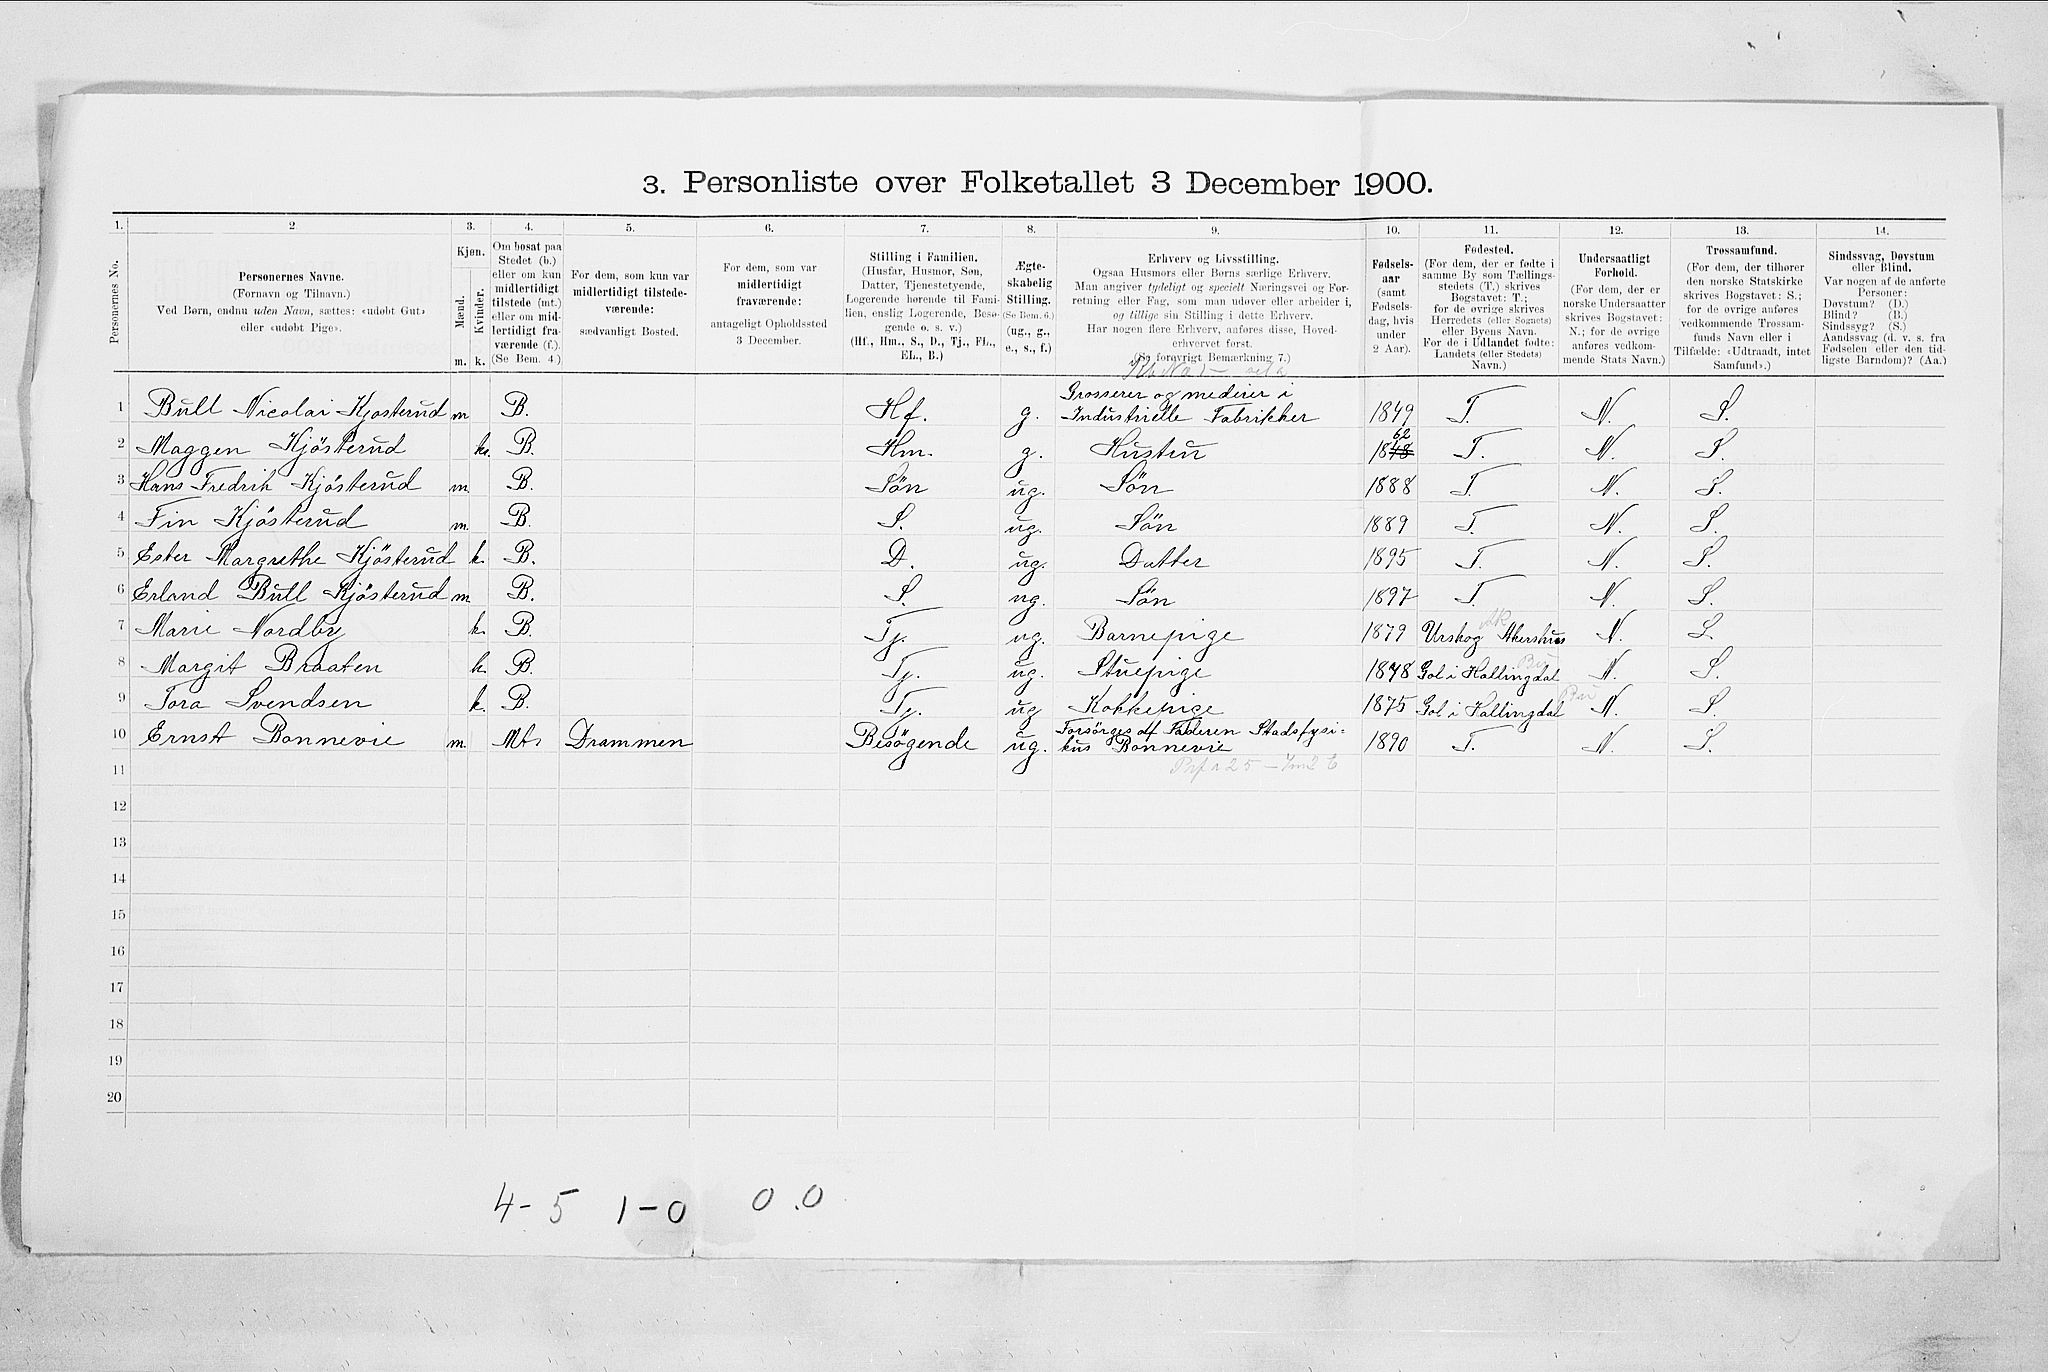 3. Personliste over Folketallet 3 December 1900.
1. 2. 3. 4. 5. 6. 7. 8. 9. 10. 11. 12. 13. 14.
Personernes No.
Personernes Navne.
(Fornavn og Tilnavn.)
Ved Børn, endnu uden Navn, sættes: «udøbt Gut»
eller «udøbt Pige».
Kjøn.
Mænd.
Kvinder.
m. k.
Om bosat paa
Stedet (b.)
eller om kun
midlertidigt
tilstede (mt.)
eller om mid-
lertidigt fra-
værende (f.)
(Se Bem. 4.)
For dem, som kun var
midlertidigt tilstede-
værende:
sædvanligt Bosted.
For dem, som var
midlertidigt
fraværende:
antageligt Opholdssted
3 December.
Stilling i Familien.
(Husfar, Husmor, Søn,
Datter, Tjenestetyende,
Logerende hørende til Fami-
lien, enslig Logerende, Besø-
gende o. s. v.)
(Hf., Hm., S., D., Tj., FL.,
EL., B.)
Ægte-
skabelig
Stilling.
(Se Bem. 6.)
(ug., g.,
e., s., f.)
Erhverv og Livsstilling.
Ogsaa Husmors eller Børns særlige Erhverv.
Man angiver tydeligt og specielt Næringsvei og For-
retning eller Fag, som man udøver eller arbeider i,
og tillige sin Stilling i dette Erhverv.
Har nogen flere Erhverv, anføres disse, Hoved-
erhvervet først.
(Se forøvrigt Bemærkning 7.)
Fødsels-
aar
(samt
Fødsels-
dag, hvis
under
2 Aar).
Fødested.
(For dem, der er fødte i
samme By som Tællings-
stedets (T.) skrives
Bogstavet: T.;
for de øvrige skrives
Herredets (eller Sognets)
eller Byens Navn.
For de i Udlandet fødte:
Landets (eller Stedets)
Navn.)
Undersaatligt
Forhold.
(For dem, der er
norske Undersaatter
skrives Bogstavet:
N.; for de øvrige
anføres vedkom-
mende Stats Navn.)
Trossamfund.
(For dem, der tilhører
den norske Statskirke
skrives Bogstavet: S.;
for de øvrige anføres
vedkommende Trossam-
funds Navn eller i
Tilfælde: «Udtraadt, intet
Samfund».)
Sindssvag, Døvstum
eller Blind.
Var nogen af de anførte
Personer:
Døvstum? (D.)
Blind? (B.)
Sindssyg? (S.)
Aandssvag (d. v. s. fra
Fødselen eller den tid-
ligste Barndom)? (Aa.)
Grosserer og medeier i
1 Bull Nicolai Kjosterud m B. Hf. g. Industrielle Fabrikker 1849 T. N. S.
62
2 Maggen Kjösterud k. B. Hm. g. Hustru 1848 T. N. S.
3 Hans Fredrik Kjösterud m. B. Sön ug. Sön 1888 T. N. S.
4 Fin Kjösterud m. B. S. ug. Sön 1889 T. N. S.
5 Ester Margrethe Kjösterud k. B. D. ug. Datter 1895 T. N. S.
6 Erland Bull Kjösterud m. B. S. ug. Sön 1897 T. N. S.
7 Marie Nordby k. B. Tj. ug. Barnepige 1879 Urskog Akershus N. S.
8 Margit Braaten k. B. Tj. ug. Stuepige 1878 Gol i Hallingdal N. S.
9 Tora Svendsen k. B. Tj. ug Kokkepige 1875 Gol i Hallingdal N. S.
Forsörges af Faderen Stadsfysi-
10 Ernst Bonnevie m. Mt. Drammen Besögende ug. kus Bonnevie 1890 T. N. S.
11
12
13
14
15
16
17
18
19
20
4-5 1-0 0.0